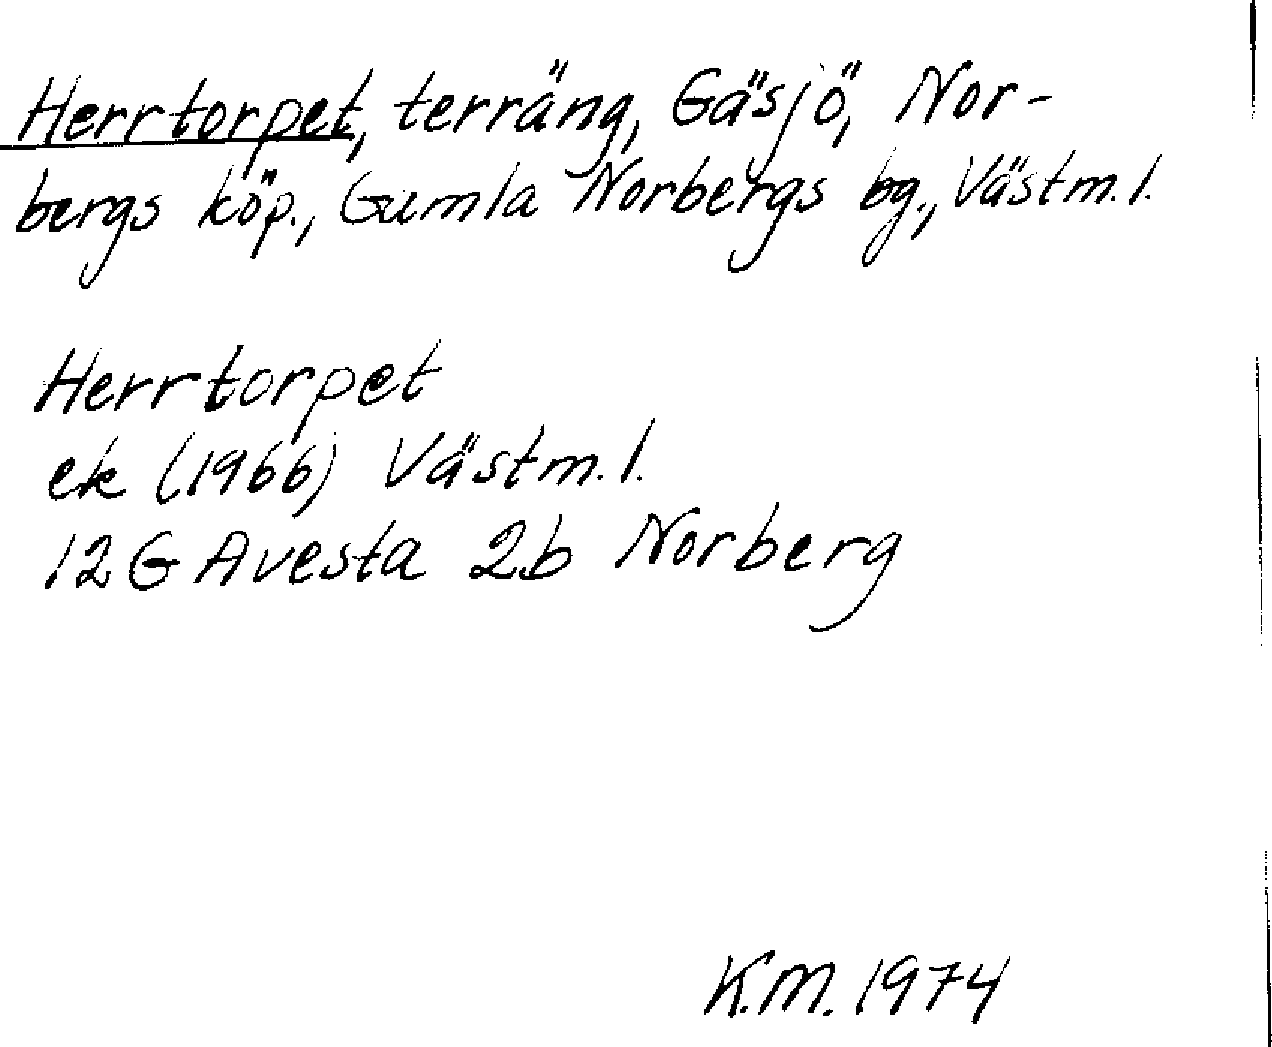 Herrtorpet, terräng, Gäsjö, Nor-
bergs köp., Gamla Norbergs bg., Västm.l.
Herrtorpet
ek (1966) Västm.l.
12G Avesta 2b Norberg
K.M. 1974